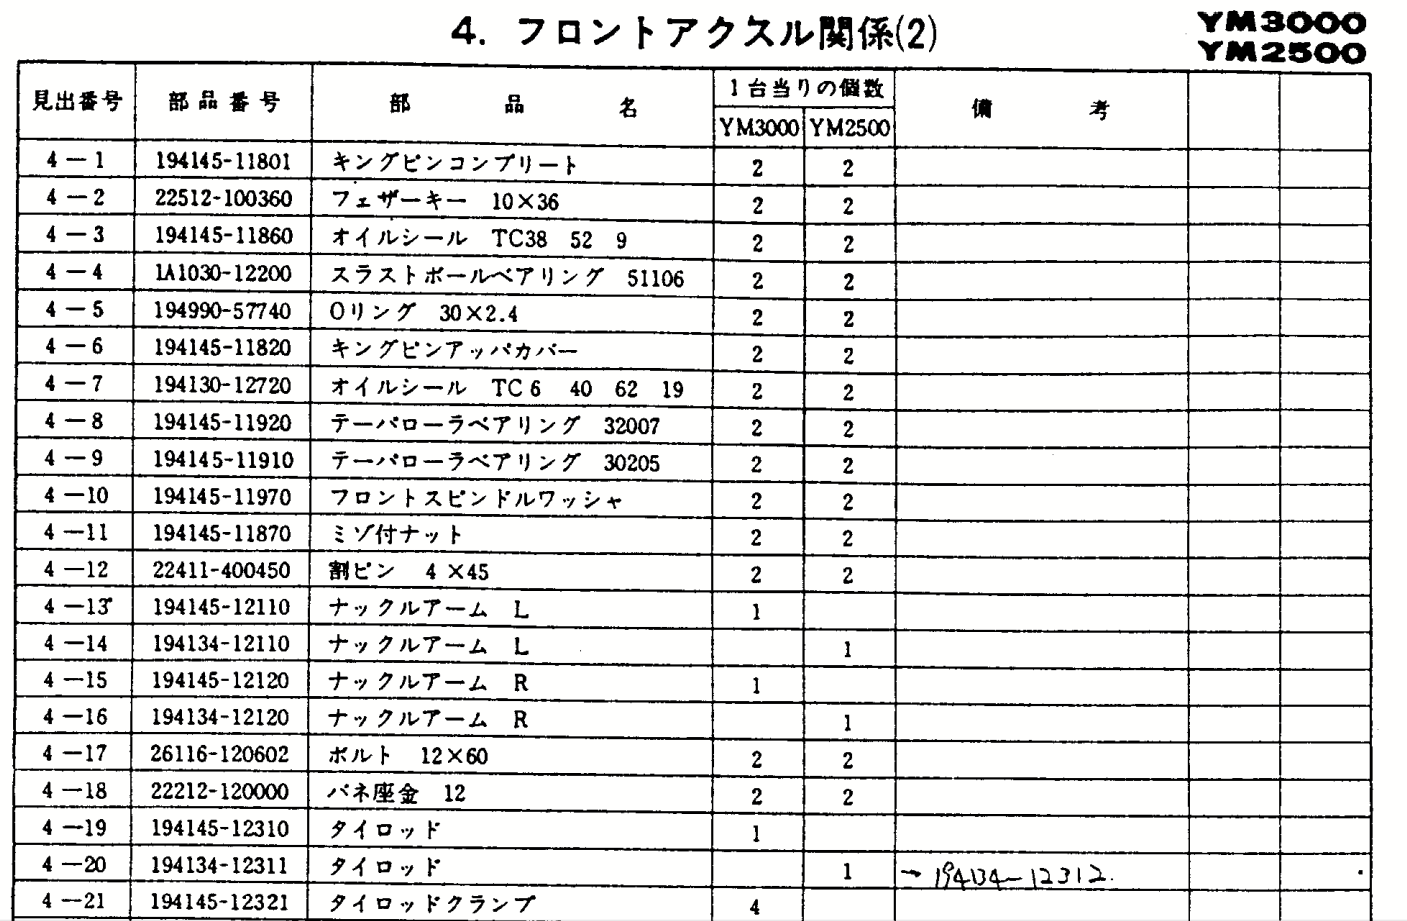 4. フロントアクスル関係(2)
YM3000
YM2500
見出番号 部品番号 部品名 1台当りの個数 備考
YM3000 YM2500
4－1 194145-11801 キングピンコンプリート 2 2
4－2 22512-100360 フェザーキー 10×36 2 2
4－3 194145-11860 オイルシール TC38 52 9 2 2
4－4 1A1030-12200 スラストボールベアリング 51106 2 2
4－5 194990-57740 Oリング 30×2.4 2 2
4－6 194145-11820 キングピンアッパカバー 2 2
4－7 194130-12720 オイルシール TC6 40 62 19 2 2
4－8 194145-11920 テーパローラベアリング 32007 2 2
4－9 194145-11910 テーパローラベアリング 30205 2 2
4－10 194145-11970 フロントスピンドルワッシャ 2 2
4－11 194145-11870 ミゾ付ナット 2 2
4－12 22411-400450 割ピン 4×45 2 2
4－13 194145-12110 ナックルアーム L 1
4－14 194134-12110 ナックルアーム L 1
4－15 194145-12120 ナックルアーム R 1
4－16 194134-12120 ナックルアーム R 1
4－17 26116-120602 ボルト 12×60 2 2
4－18 22212-120000 バネ座金 12 2 2
4－19 194145-12310 タイロッド 1
4－20 194134-12311 タイロッド 1 → 194134-12312.
4－21 194145-12321 タイロッドクランプ 4